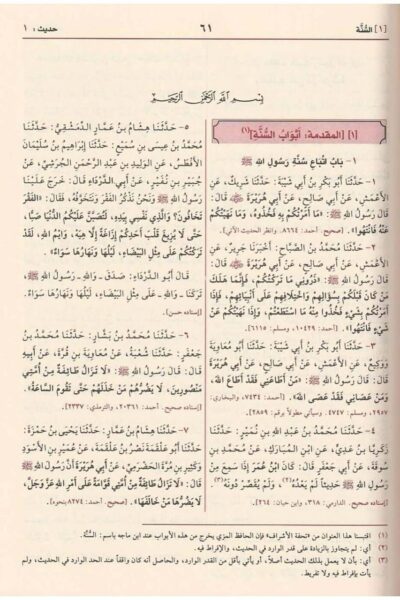 [١] السُّنَّة
٦١
حديث: ١
بِسْمِ اللهِ الرَّحْمَنِ الرَّحِيمِ
[١] [المقدمة: أَبْوَابُ السُّنَّةِ](١)
١ - بَابُ اتِّبَاعِ سُنَّةِ رَسُولِ اللهِ ﷺ
١ - حَدَّثَنَا أَبُو بَكْرِ بنُ أَبِي شَيْبَةَ: حَدَّثَنَا شَرِيكٌ، عَنِ
الأَعْمَشِ، عَنْ أَبِي صَالِحٍ، عَنْ أَبِي هُرَيْرَةَ قَالَ: قَالَ
رَسُولُ اللهِ ﷺ: «مَا أَمَرْتُكُمْ بِهِ فَخُذُوهُ، وَمَا نَهَيْتُكُمْ
عَنْهُ فَانْتَهُوا». [صحيح. أحمد: ٨٦٦٤، وانظر الحديث الآتي]
٢ - حَدَّثَنَا مُحَمَّدُ بنُ الصَّبَّاحِ: أَخْبَرَنَا جَرِيرٌ، عَنِ
الأَعْمَشِ، عَنْ أَبِي صَالِحٍ، عَنْ أَبِي هُرَيْرَةَ قَالَ:
قَالَ رَسُولُ اللهِ ﷺ: «ذَرُونِي مَا تَرَكْتُكُمْ، فَإِنَّمَا هَلَكَ
مَنْ كَانَ قَبْلَكُمْ بِسُؤَالِهِمْ وَاخْتِلَافِهِمْ عَلَى أَنْبِيَائِهِمْ، فَإِذَا
أَمَرْتُكُمْ بِشَيْءٍ فَخُذُوا مِنْهُ مَا اسْتَطَعْتُمْ، وَإِذَا نَهَيْتُكُمْ عَنْ
شَيْءٍ فَانْتَهُوا». [أحمد: ١٠٤٢٩، ومسلم: ٦١١٥]
٣ - حَدَّثَنَا أَبُو بَكْرِ بنُ أَبِي شَيْبَةَ: حَدَّثَنَا أَبُو مُعَاوِيَةَ
وَوَكِيعٌ، عَنِ الأَعْمَشِ، عَنْ أَبِي صَالِحٍ، عَنْ أَبِي هُرَيْرَةَ
قَالَ: قَالَ رَسُولُ اللهِ ﷺ: «مَنْ أَطَاعَنِي فَقَدْ أَطَاعَ اللهَ،
وَمَنْ عَصَانِي فَقَدْ عَصَى اللهَ». [أحمد: ٧٤٣٤، والبخاري:
٢٩٥٧، ومسلم: ٤٧٤٧، وسيأتي مطولاً برقم: ٢٨٥٩]
٤ - حَدَّثَنَا مُحَمَّدُ بنُ عَبْدِ اللهِ بنِ نُمَيْرٍ: حَدَّثَنَا
زَكَرِيَّا بنُ عَدِيٍّ، عَنِ ابْنِ المُبَارَكِ، عَنْ مُحَمَّدِ بنِ
سُوقَةَ، عَنْ أَبِي جَعْفَرٍ قَالَ: كَانَ ابْنُ عُمَرَ إِذَا سَمِعَ مِنْ
رَسُولِ اللهِ ﷺ حَدِيثاً لَمْ يَعْدُهُ(٢)، وَلَمْ يُقَصِّرْ دُونَهُ(٣).
[صحيح. الدارمي: ٣١٨، وابن حبان: ٢٦٤]
٥ - حَدَّثَنَا هِشَامُ بنُ عَمَّارٍ الدِّمَشْقِيُّ: حَدَّثَنَا
مُحَمَّدُ بنُ عِيسَى بنِ سُمَيْعٍ: حَدَّثَنَا إِبْرَاهِيمُ بنُ سُلَيْمَانَ
الأَفْطَسُ، عَنِ الوَلِيدِ بنِ عَبْدِ الرَّحْمَنِ الجُرَشِيِّ، عَنْ
جُبَيْرِ بنِ نُفَيْرٍ، عَنْ أَبِي الدَّرْدَاءِ قَالَ: خَرَجَ عَلَيْنَا
رَسُولُ اللهِ ﷺ وَنَحْنُ نَذْكُرُ الفَقْرَ وَنَتَخَوَّفُهُ، فَقَالَ: «الفَقْرَ
تَخَافُونَ؟ وَالَّذِي نَفْسِي بِيَدِهِ، لَتُصَبَّنَّ عَلَيْكُمُ الدُّنْيَا صَبًّا،
حَتَّى لَا يُزِيغَ قَلْبَ أَحَدِكُمْ إِزَاغَةً إِلَّا هِيَهْ، وَايْمُ اللهِ، لَقَدْ
تَرَكْتُكُمْ عَلَى مِثْلِ البَيْضَاءِ، لَيْلُهَا وَنَهَارُهَا سَوَاءٌ».
قَالَ أَبُو الدَّرْدَاءِ: صَدَقَ - وَاللهِ - رَسُولُ اللهِ ﷺ،
تَرَكَنَا - وَاللهِ - عَلَى مِثْلِ البَيْضَاءِ، لَيْلُهَا وَنَهَارُهَا سَوَاءٌ.
[إسناده حسن]
٦ - حَدَّثَنَا مُحَمَّدُ بنُ بَشَّارٍ: حَدَّثَنَا مُحَمَّدُ بنُ
جَعْفَرٍ: حَدَّثَنَا شُعْبَةُ، عَنْ مُعَاوِيَةَ بنِ قُرَّةَ، عَنْ أَبِيهِ
قَالَ: قَالَ رَسُولُ اللهِ ﷺ: «لَا تَزَالُ طَائِفَةٌ مِنْ أُمَّتِي
مَنْصُورِينَ، لَا يَضُرُّهُمْ مَنْ خَذَلَهُمْ حَتَّى تَقُومَ السَّاعَةُ».
[إسناده صحيح. أحمد: ٢٠٣٦١، والترمذي: ٢٣٣٧]
٧ - حَدَّثَنَا هِشَامُ بنُ عَمَّارٍ: حَدَّثَنَا يَحْيَى بنُ حَمْزَةَ:
حَدَّثَنَا أَبُو عَلْقَمَةَ نَصْرُ بنُ عَلْقَمَةَ، عَنْ عُمَيْرِ بنِ الأَسْوَدِ
وَكَثِيرِ بنِ مُرَّةَ الحَضْرَمِيِّ، عَنْ أَبِي هُرَيْرَةَ أَنَّ رَسُولَ اللهِ ﷺ
قَالَ: «لَا تَزَالُ طَائِفَةٌ مِنْ أُمَّتِي قَوَّامَةً عَلَى أَمْرِ اللهِ عَزَّ وَجَلَّ،
لَا يَضُرُّهَا مَنْ خَالَفَهَا». [صحيح. أحمد: ٨٢٧٤ بنحوه]
(١) اقتبسنا هذا العنوان من «تحفة الأشراف» فإن الحافظ المزي يخرج من هذه الأبواب عند ابن ماجه باسم: السُّنَّة.
(٢) أي: لم يتجاوز بالزيادة على قدر الوارد في الحديث، والإفراط فيه.
(٣) أي: بأن لا يعمل بذلك الحديث أصلاً، أو يأتي بأقل من القدر الوارد، والحاصل أنه كان واقفاً عند الحد الوارد في الحديث، ولم
يأت بإفراط فيه ولا تفريط.